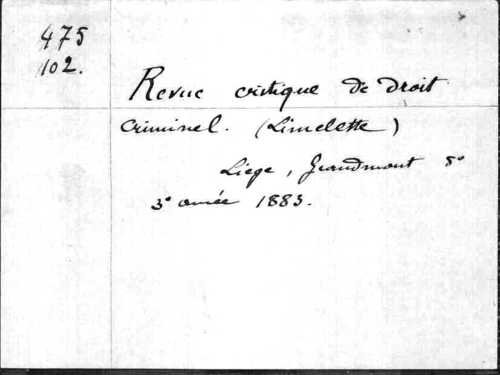 475
102.
Revue critique de droit
criminel. (Limelette)
Liège, Grandmont 8°
3e année 1883.